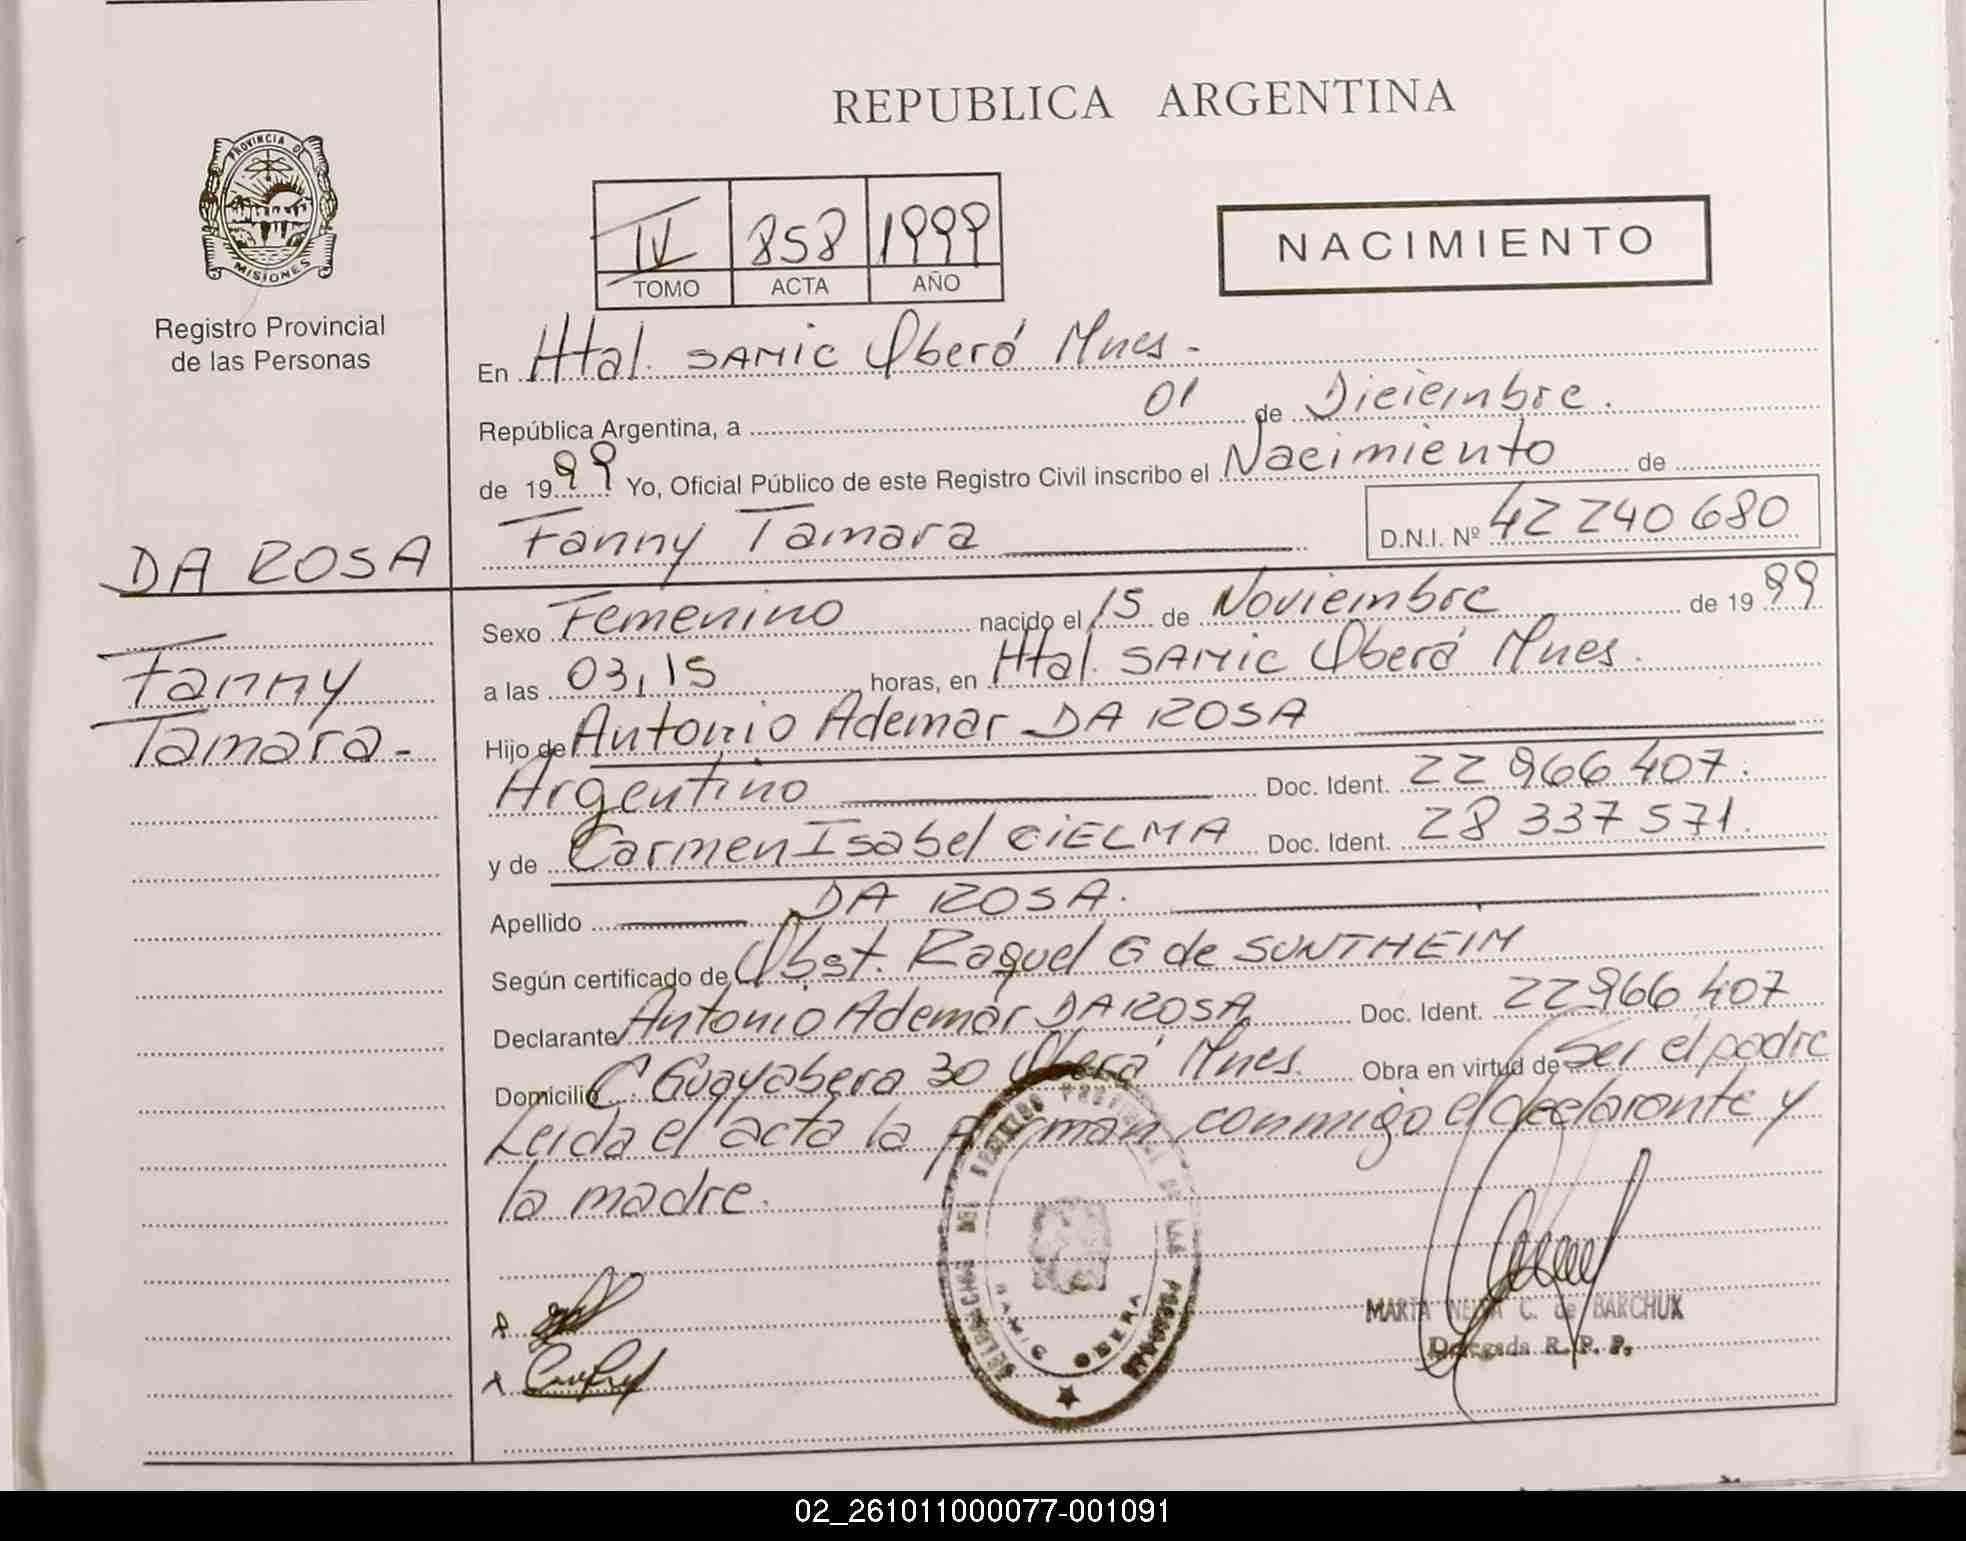 REPUBLICA ARGENTINA
PROVINCIA DE
MISIONES
Registro Provincial
de las Personas
IV 858 1999
TOMO ACTA AÑO
NACIMIENTO
En Htal. SAMIC Oberá Mnes.
República Argentina, a 01 de Diciembre.
de 1999 Yo, Oficial Público de este Registro Civil inscribo el Nacimiento de
Fanny Tamara D.N.I. Nº 42 240 680
DA ROSA
Fanny
Tamara-
Sexo Femenino nacido el 15 de Noviembre de 1999
a las 03,15 horas, en Htal. SAMIC Oberá Mnes.
Hijo de Antonio Ademar DA ROSA
Argentino Doc. Ident. 22 966 407.
y de Carmen Isabel CIELMA Doc. Ident. 28 337 571.
Apellido DA ROSA.
Según certificado de Obst. Raquel G de SUNTHEIM
Declarante Antonio Ademar DA ROSA Doc. Ident. 22966 407
Domicilio C. Guayabera 30 Oberá Mnes. Obra en virtud de Ser el padre
Leida el acta la firman conmigo el declarante y
la madre.
SAMIC OBERA
MARTA C. de BARCHUK
Delegada R. P. P.
02_261011000077-001091